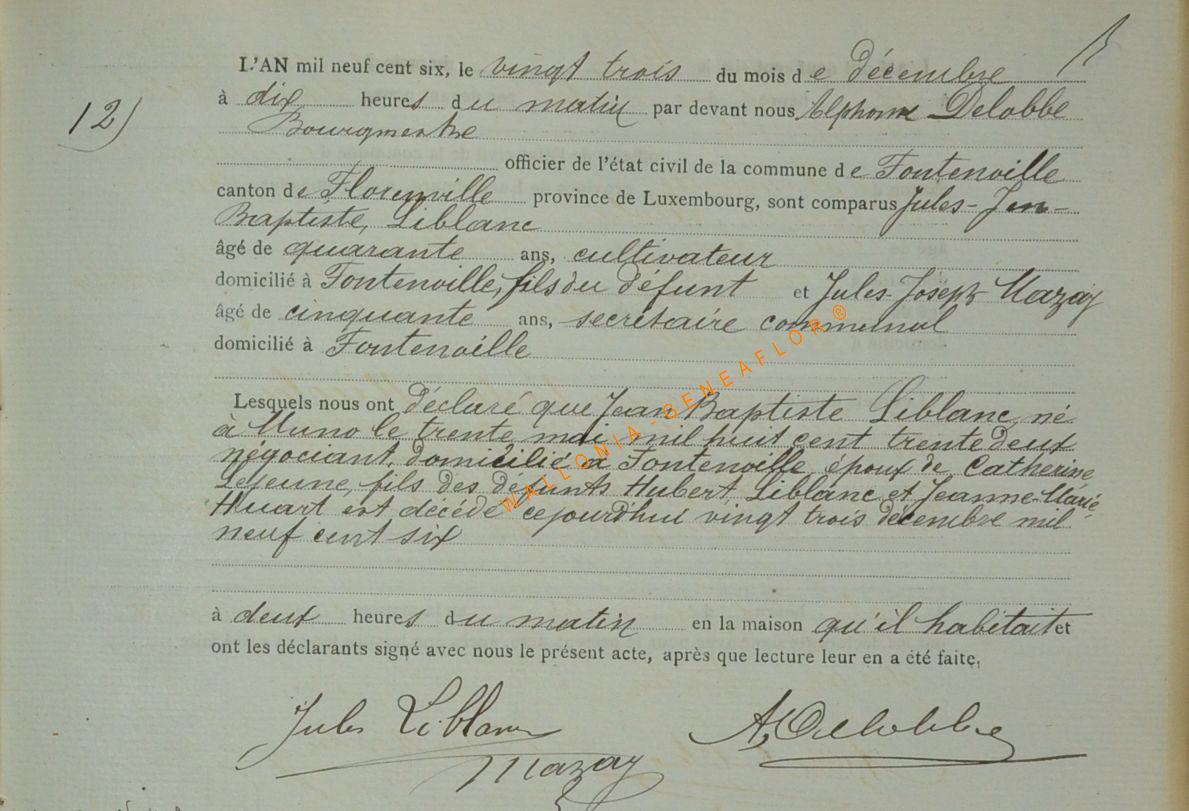 L'AN mil neuf cent six, le vingt trois du mois de décembre
12)
à dix heures du matin par devant nous Alphonse Delobbe
Bourgmestre
officier de l'état civil de la commune de Fontenoille
canton de Florenville province de Luxembourg, sont comparus Jules-Jean-
Baptiste, Liblanc
âgé de quarante ans, cultivateur
domicilié à Fontenoille, fils du défunt et Jules-Joseph Mazay
âgé de cinquante ans, secrétaire communal
domicilié à Fontenoille
Lesquels nous ont déclaré que Jean Baptiste Liblanc, né
à Muno le trente mai mil huit cent trente deux
négociant, domicilié à Fontenoille, époux de Catherine
Lejeune, fils des défunts Hubert Liblanc et Jeanne-Marie
Huart est décédé cejourd'hui vingt trois décembre mil
neuf cent six
à deux heures du matin en la maison qu'il habitait et
ont les déclarants signé avec nous le présent acte, après que lecture leur en a été faite.
Jules Liblanc A. Delobbe
Mazay
WALLONIA-GENEAFLOR®